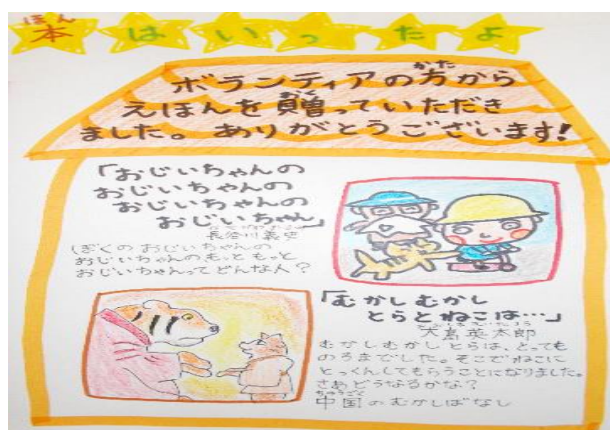 本はいったよ
ほん
ボランティアの方から
かた
えほんを贈っていただき
おく
ました。ありがとうございます!
「おじいちゃんの
おじいちゃんの
おじいちゃんの
おじいちゃん」
長谷川義史
ぼくのおじいちゃんの
おじいちゃんのもっともっと
おじいちゃんってどんな人?
「むかしむかし
とらとねこは…」
大島英太郎
むかしむかしとらは、とっても
のろまでした。そこでねこに
とっくんしてもらうことになりました。
さあどうなるかな?
ちゅうごく
中国のむかしばなし